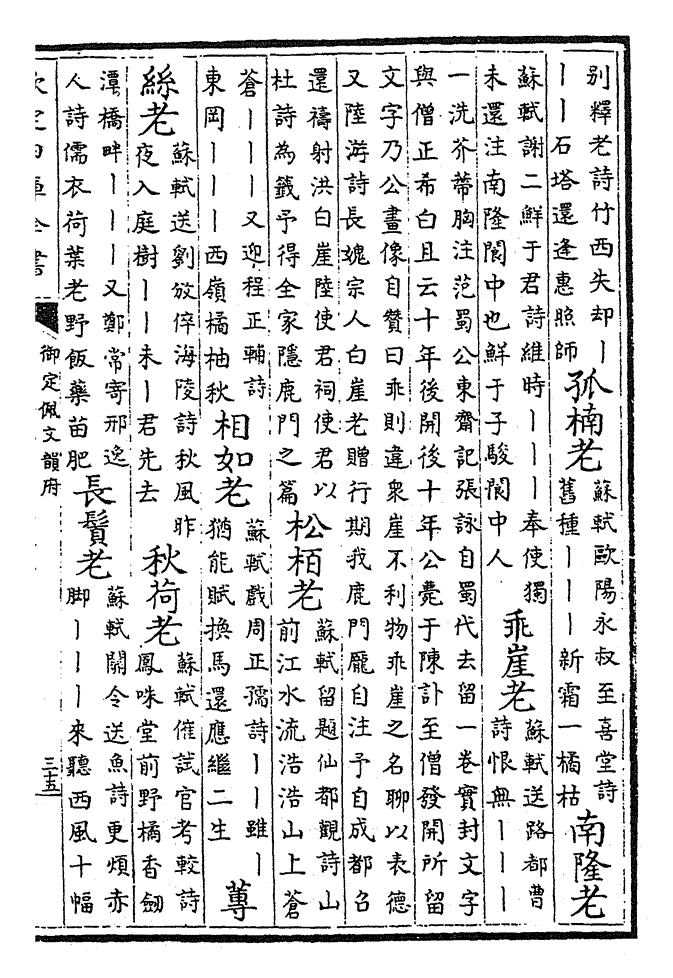 別釋老詩竹西失却丨
丨丨石塔還逢惠照師
孤楠老
蘇軾歐陽永叔至喜堂詩
舊種丨丨丨新霜一橘枯
南隆老
蘇軾謝二鮮于君詩維時丨丨丨奉使獨
未還注南隆閬中也鮮于子駿閬中人
乖崖老
蘇軾送路都曹
詩恨無丨丨丨
一洗芥蔕胸注范蜀公東齋記張詠自蜀代去留一卷實封文字
與僧正希白且云十年後開後十年公薨于陳訃至僧發開所留
文字乃公畫像自贊曰乖則違衆崖不利物乖崖之名聊以表德
又陸游詩長媿宗人白崖老贈行期我鹿門龎自注予自成都召
還禱射洪白崖陸使君祠使君以
杜詩為籤予得全家隱鹿門之篇
松栢老
蘇軾留題仙都觀詩山
前江水流浩浩山上蒼
蒼丨丨丨又迎程正輔詩
東岡丨丨丨西嶺橘柚秋
相如老
蘇軾戲周正孺詩丨丨雖丨
猶能賦換馬還應繼二生
蓴
絲老
蘇軾送劉攽倅海陵詩秋風昨
夜入庭樹丨丨未丨君先去
秋荷老
蘇軾催試官考較詩
鳳咮堂前野橘香劒
潭橋畔丨丨丨又鄭常寄邢逸
人詩儒衣荷葉老野飯藥苗肥
長鬚老
蘇軾關令送魚詩更煩赤
脚丨丨丨來聽西風十幅
欽定四庫全書
御定佩文韻府
三十五